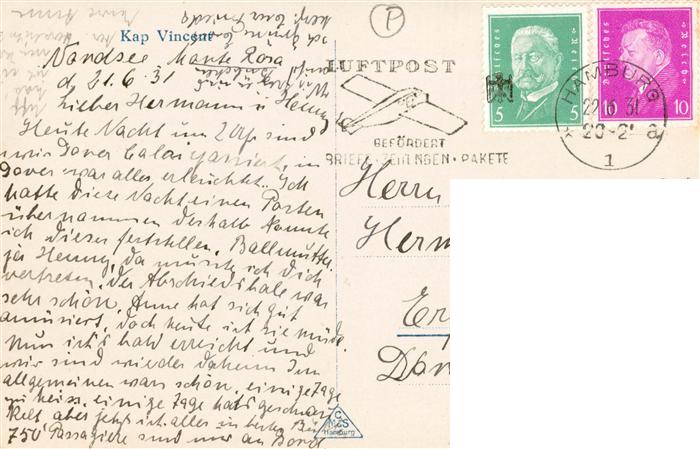 Kap Vincent
Nordsee Monte Rosa
d. 21.6.31
Lieber Hermann u Henny
Heute Nacht um 2 Uhr sind
wir Dover Calai passiert, in
Dover war alles erleuchtet. Ich
hatte diese Nacht einen Posten
übernommen deshalb konnte
ich dieses feststellen. Ballmutter
ja Henny, da musste ich Dich
vertreten. Der Abschiedsball war
sehr schön. Anne hat sich gut
amüsiert, doch heute ist sie müde.
Nun ist's bald erreicht und
wir sind wieder daheim. Im
allgemeinen wars schön, einige Tage
zu heiss, einige Tage hats geschau
kelt aber jetzt ist alles in bester
750 Passagiere sind wir an Bord
LUFTPOST
GEFÖRDERT
BRIEFE · ZEITUNGEN · PAKETE
Deutsches Reich
5 5
Deutsches Reich
10 10
HAMBURG
22.6.31
20-21 a
1
P
Herrn
Herm
Er
Dän
C
M&S
Hamburg